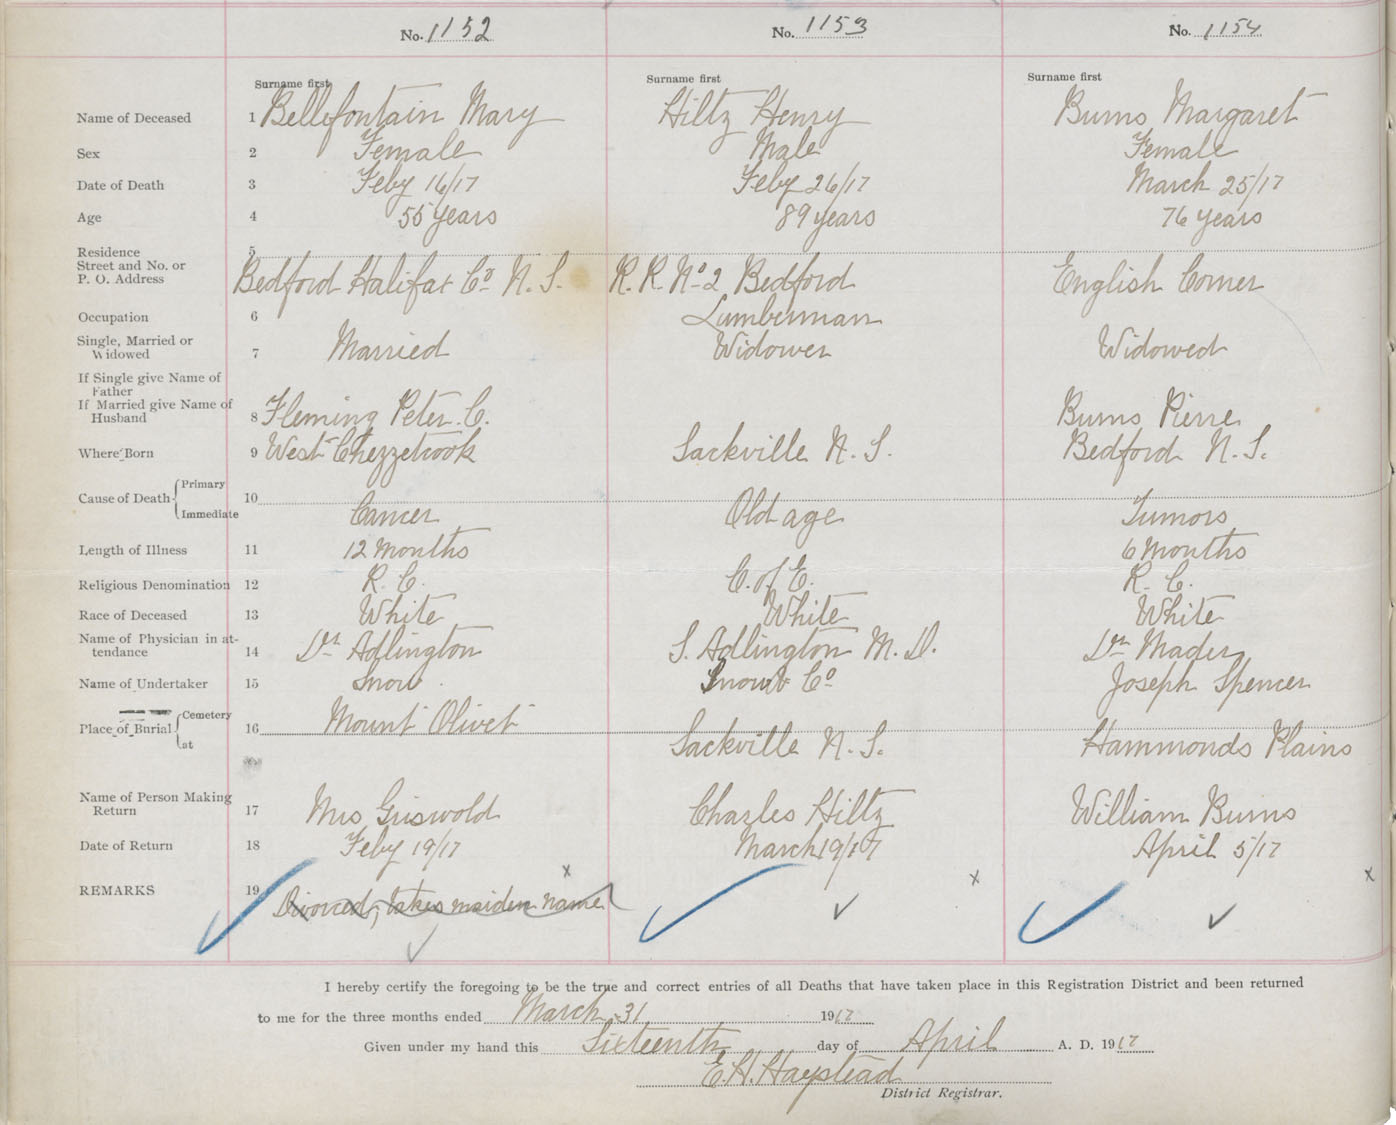 No. 1152 No. 1153 No. 1154
Surname first Surname first Surname first
Name of Deceased 1 Bellefontain Mary Hiltz Henry Burns Margaret
Sex 2 Female Male Female
Date of Death 3 Feby 16/17 Feby 26/17 March 25/17
Age 4 55 years 89 years 76 years
Residence 5
Street and No. or
P. O. Address Bedford Halifax Co. N. S. R. R. No 2 Bedford English Corner
Occupation 6 Lumberman
Single, Married or
Widowed 7 Married Widower Widowed
If Single give Name of
Father
If Married give Name of
Husband 8 Fleming Peter. C. Burns Pierre
Where Born 9 West Chezzetcook Sackville N. S. Bedford N. S.
Cause of Death Primary 10
Immediate Cancer Old age Tumors
Length of Illness 11 12 months 6 months
Religious Denomination 12 R. C. C. of E. R. C.
Race of Deceased 13 White White White
Name of Physician in at-
tendance 14 Dr. Adlington S. Adlington M. D. Dr. Mader
Name of Undertaker 15 Snow Snow & Co Joseph Spencer
Place of Burial Cemetery 16 Mount Olivet
at Sackville N. S. Hammonds Plains
Name of Person Making
Return 17 Mrs Griswold Charles Hiltz William Burns
Date of Return 18 Feby 19/17 March 19/17 April 5/17
REMARKS 19 Divorced, takes maiden name
I hereby certify the foregoing to be the true and correct entries of all Deaths that have taken place in this Registration District and been returned
to me for the three months ended March 31 1917
Given under my hand this Sixteenth day of April A. D. 1917
E. H. Haystead
District Registrar.